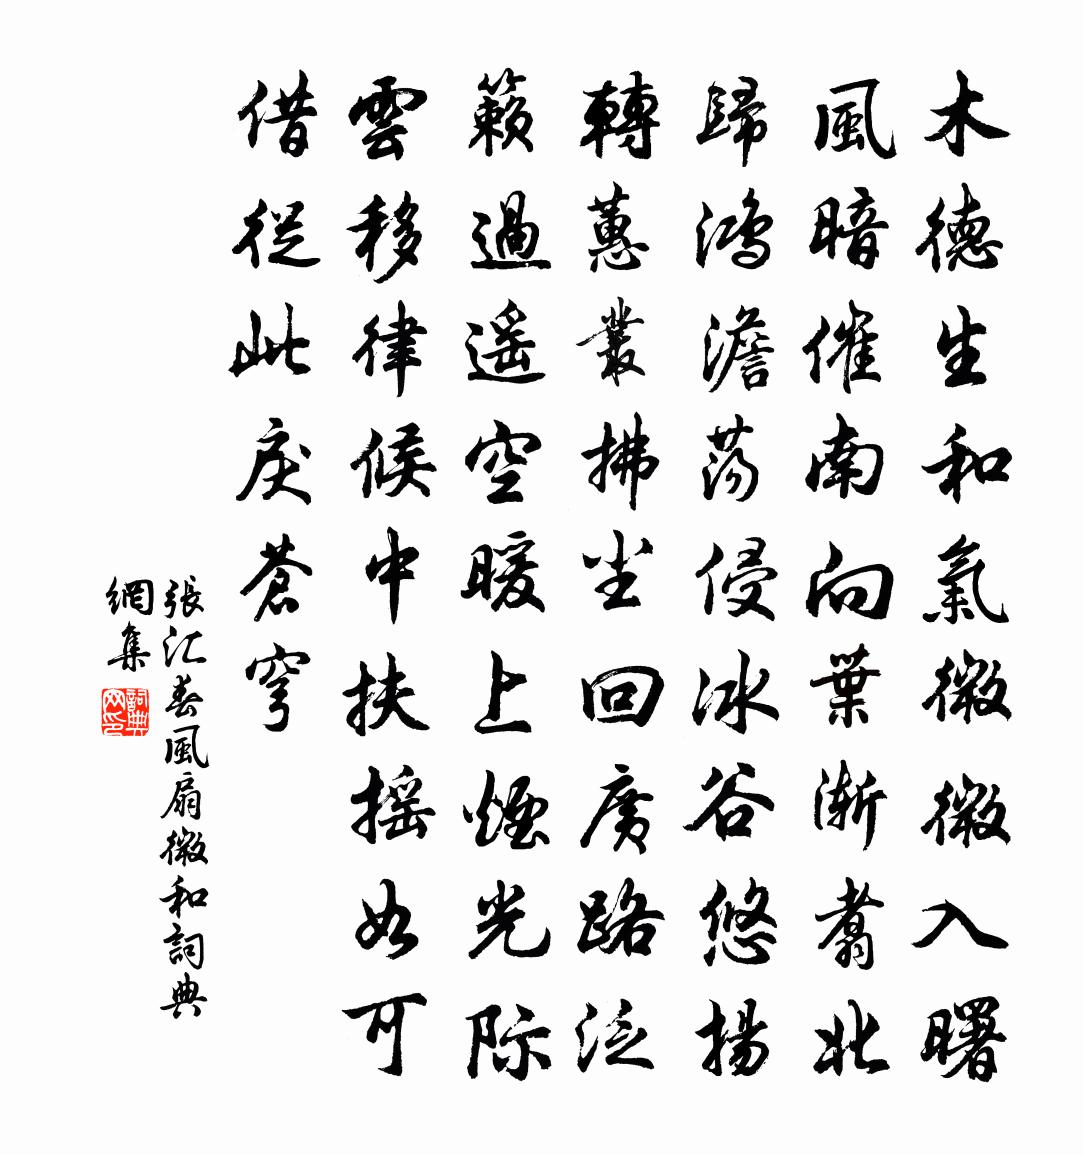 木德生和氣微微入曙
風暗催南向葉漸翥北
歸鴻澹蕩侵冰谷悠揚
轉蕙叢拂尘回廣路泛
籟過遥空暖上煙光際
雲移律候中扶摇如可
借從此戾蒼穹
張汇春風扇微和詞典
網集
詞典网印